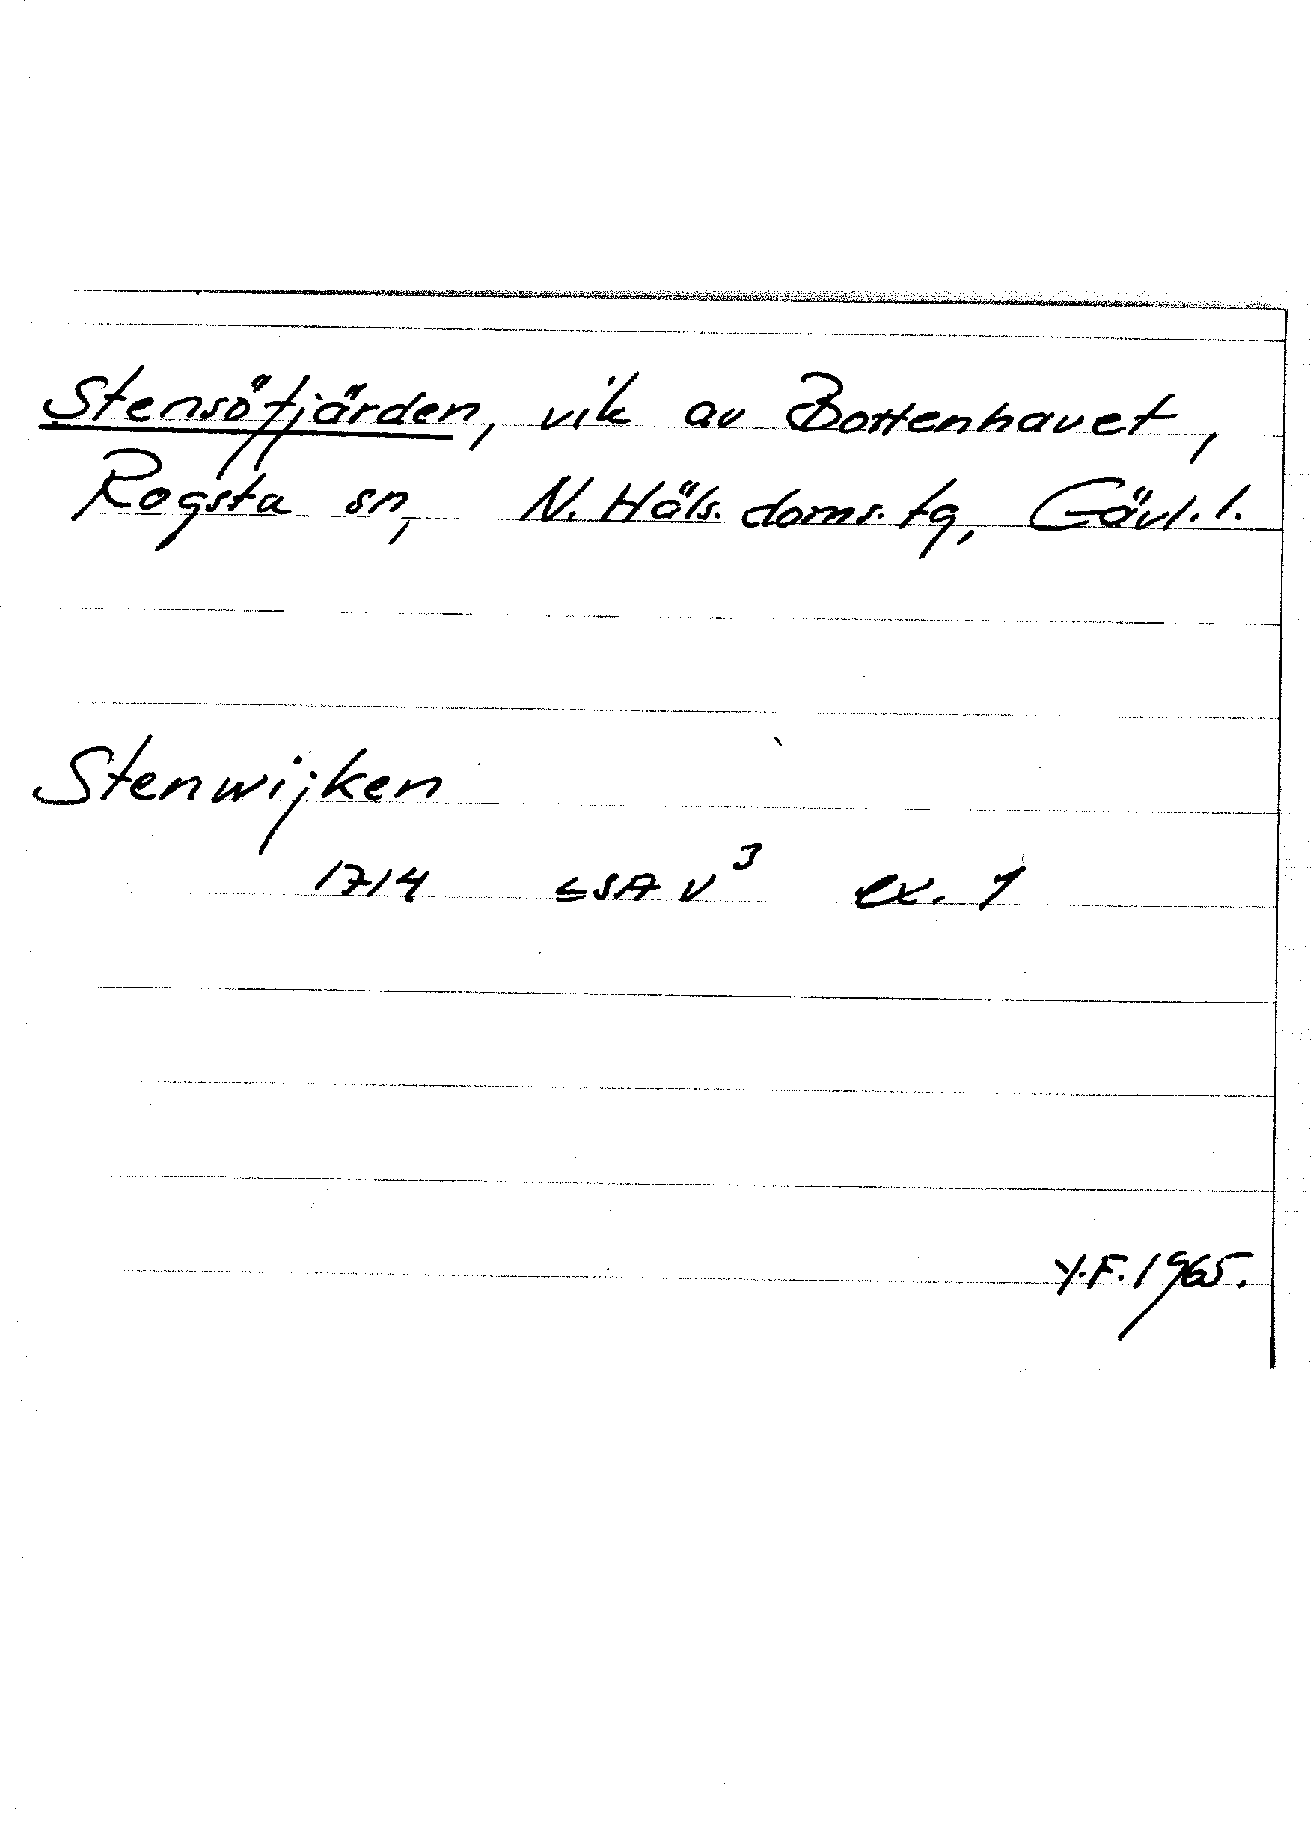 Stensöfjärden, vik av Bottenhavet,
Rogsta sn, N. Häls. doms. tg, Gävl. l.
Stenwijken
1714 LSA V³ ex. 1
Y.F. 1965.